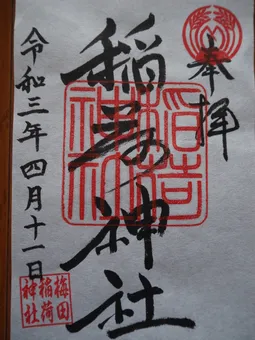 奉拝
稲荷神社
稲荷
神社
令和三年四月十一日
梅田
稲荷
神社